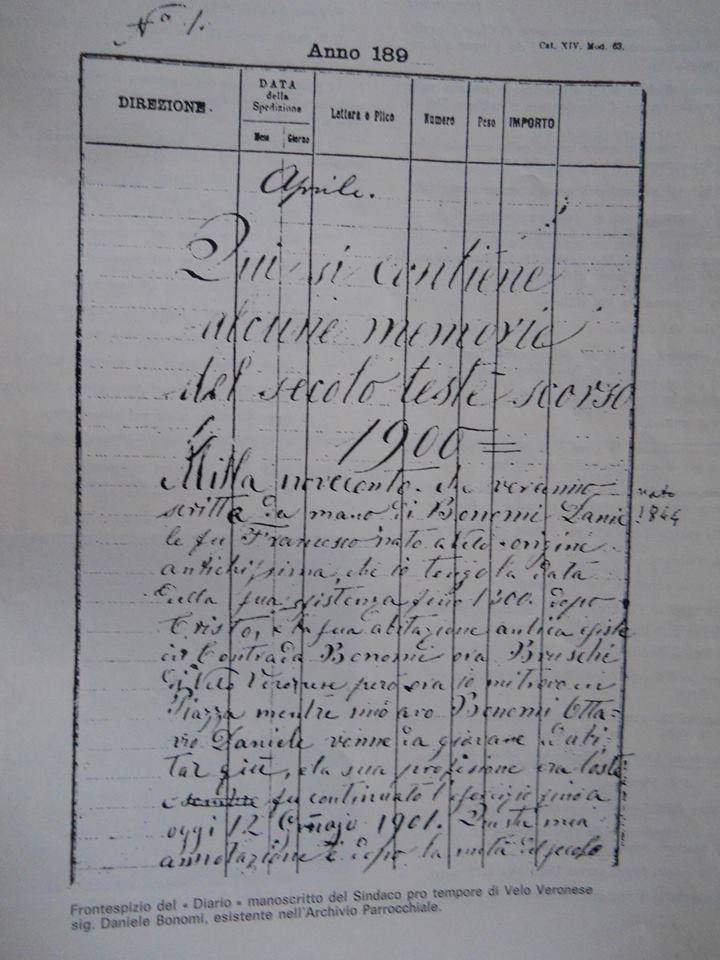 Nº 1.
Anno 189
Cat. XIV. Mod. 63.
DIREZIONE.
DATA
della
Spedizione
Mese Giorno
Lettera o Plico
Numero
Peso
IMPORTO
Aprile.
Qui si contiene
alcune memorie
del secolo testè scorso
1900 =
Milla novecento. che veranno
nato
scritta da mano di Bonomi Danie
1844
le fu Francesco nato a Velo origine
antichissima, che io tengo la data
della sua esistenza fino 1300. dopo
Cristo, e la sua abitazione antica esiste
in Contrada Bonomi ora Bruschi
di Velo Veronese però ora io mi trovo in
Piazza mentre mio avo Bonomi Otta-
vio Daniele venne da giovane Dabi-
tar giù, e la sua profesione era l'oste
e fu continuato l'esercizio fino a
oggi 12 Genajo 1901. Questa mea
annotazione è dopo la metà del secolo
Frontespizio del « Diario » manoscritto del Sindaco pro tempore di Velo Veronese
sig. Daniele Bonomi, esistente nell'Archivio Parrocchiale.